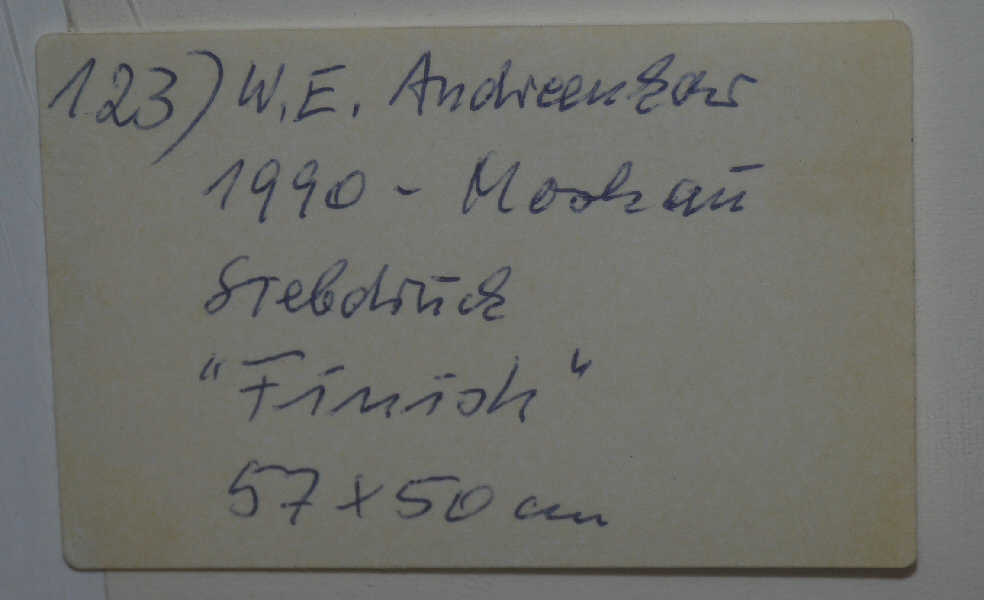 123) W. E. Andreenkow
1990 - Moskau
Siebdruck
"Finish"
57 x 50 cm